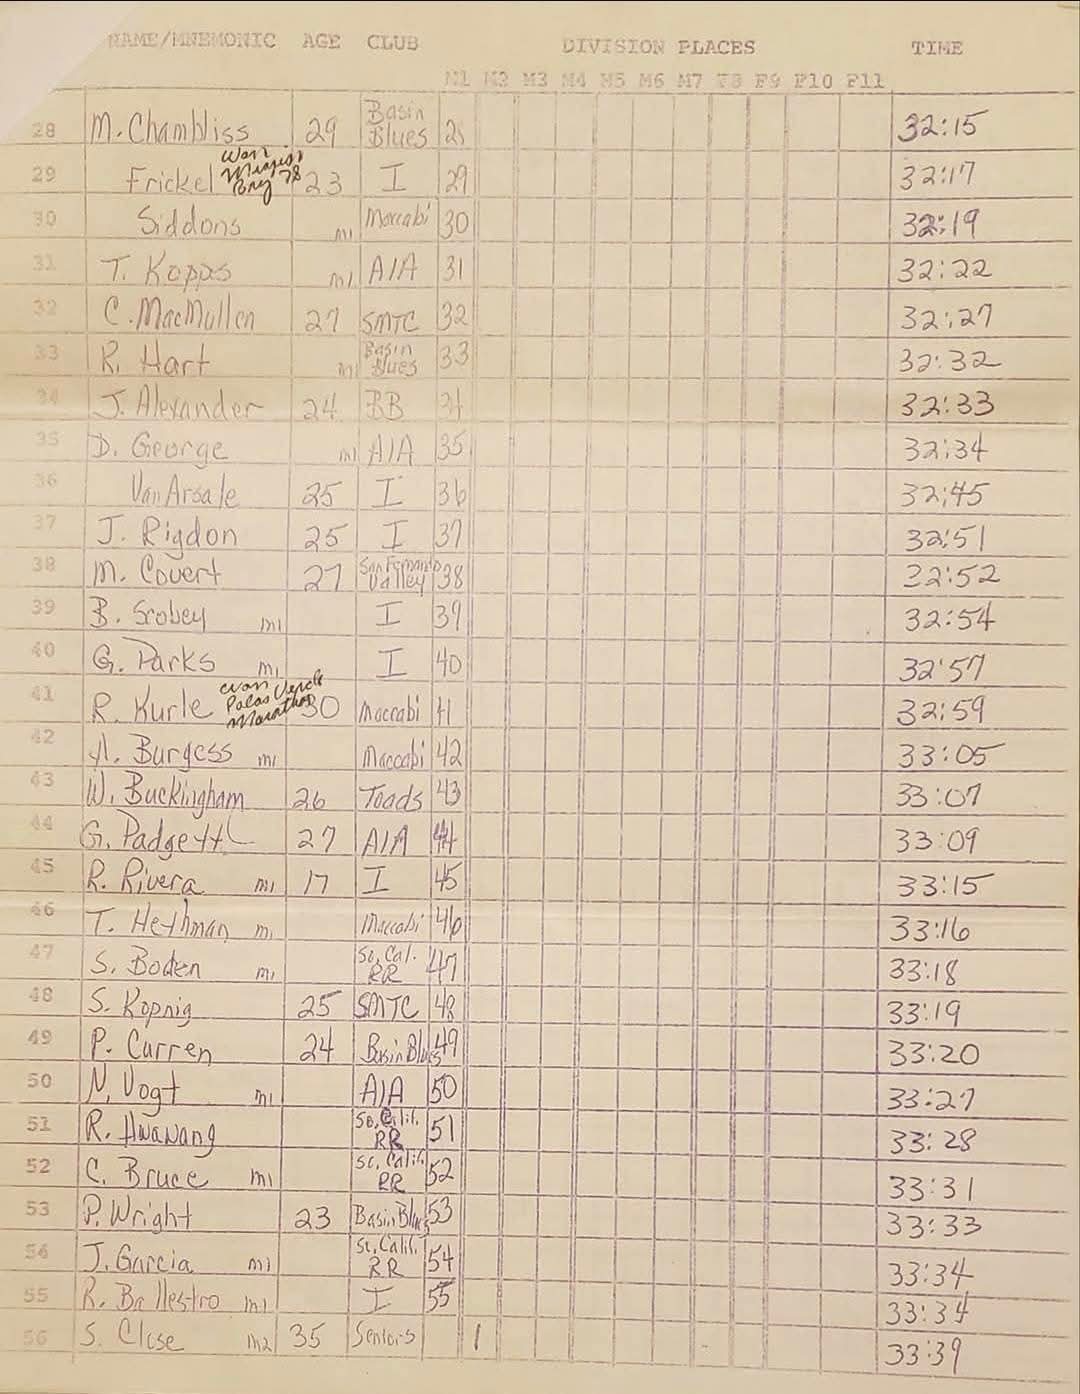 NAME/MNEMONIC AGE CLUB DIVISION PLACES TIME
M1 M2 M3 M4 M5 M6 M7 F8 F9 F10 F11
28 M. Chambliss 29 Basin Blues 28 32:15
29 Frickel won Mission Bay 78 23 I 29 32:17
30 Siddons m1 Maccabi 30 32:19
31 T. Kopps m1 AIA 31 32:22
32 C. MacMullen 27 SMTC 32 32:27
33 R. Hart m1 Basin Blues 33 32:32
34 J. Alexander 24 BB 34 32:33
35 D. George m1 AIA 35 32:34
36 VanArsale 25 I 36 32:45
37 J. Rigdon 25 I 37 32:51
38 M. Covert 27 San Fernando Valley 38 32:52
39 B. Scobey m1 I 39 32:54
40 G. Parks m1 I 40 32:57
41 R. Kurle won Palos Verde Marathon 30 Maccabi 41 32:59
42 A. Burgess m1 Maccabi 42 33:05
43 W. Buckingham 26 Toads 43 33:07
44 G. Padgett 27 AIA 44 33:09
45 R. Rivera m1 17 I 45 33:15
46 T. Hethman m1 Maccabi 46 33:16
47 S. Boden m1 So, Cal. RR 47 33:18
48 S. Kopnig 25 SMTC 48 33:19
49 P. Curren 24 Basin Blues 49 33:20
50 N. Vogt m1 AIA 50 33:27
51 R. Hwawang So, Calif. RR 51 33:28
52 C. Bruce m1 So, Calif. RR 52 33:31
53 P. Wright 23 Basin Blues 53 33:33
54 J. Garcia m1 So, Calif. RR 54 33:34
55 R. Ballestro m1 I 55 33:34
56 S. Close m2 35 Seniors 1 33:39